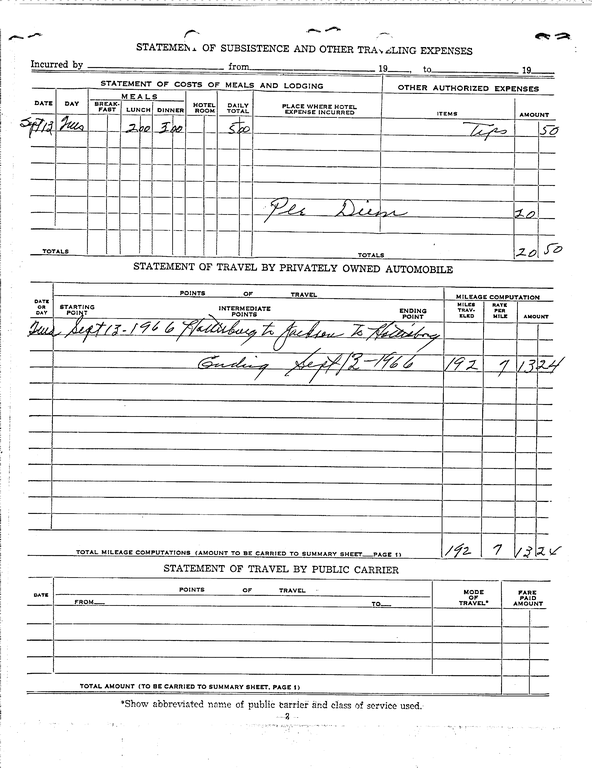 STATEMENT OF SUBSISTENCE AND OTHER TRAVELING EXPENSES
Incurred by from 19 , to 19
STATEMENT OF COSTS OF MEALS AND LODGING OTHER AUTHORIZED EXPENSES
DATE DAY MEALS BREAK-FAST LUNCH DINNER HOTEL ROOM DAILY TOTAL PLACE WHERE HOTEL EXPENSE INCURRED ITEMS AMOUNT
Sept 13 Tues 2 00 3 00 5 00 Tips 50
Per Diem 20
TOTALS TOTALS 20 50
STATEMENT OF TRAVEL BY PRIVATELY OWNED AUTOMOBILE
DATE OR DAY POINTS OF TRAVEL MILEAGE COMPUTATION
STARTING POINT INTERMEDIATE POINTS ENDING POINT MILES TRAV-ELED RATE PER MILE AMOUNT
Tues Sept 13-1966 Hattisburg to Jackson To Hattisburg
Ending Sept 13-1966 192 7 13 24
TOTAL MILEAGE COMPUTATIONS (AMOUNT TO BE CARRIED TO SUMMARY SHEET PAGE 1) 192 7 13 24
STATEMENT OF TRAVEL BY PUBLIC CARRIER
DATE POINTS OF TRAVEL MODE OF TRAVEL* FARE PAID AMOUNT
FROM TO
TOTAL AMOUNT (TO BE CARRIED TO SUMMARY SHEET, PAGE 1)
*Show abbreviated name of public carrier and class of service used.
-2-